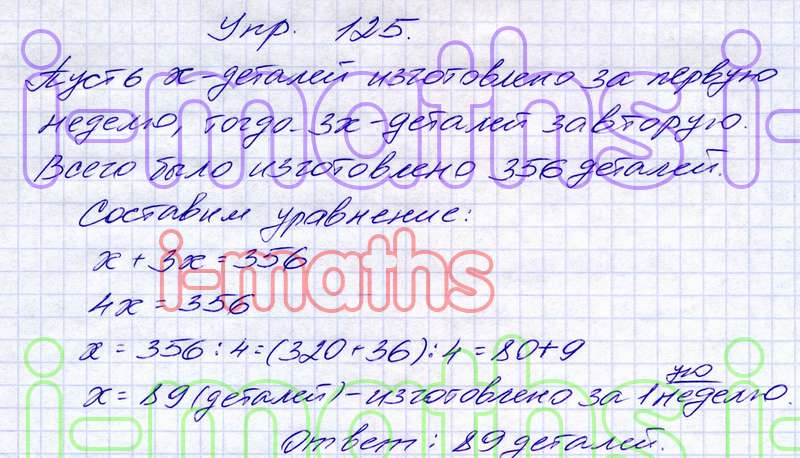 Упр. 125.
Пусть x-деталей изготовлено за первую
неделю, тогда 3x-деталей за вторую.
Всего было изготовлено 356 деталей.
Составим уравнение:
x + 3x = 356
4x = 356
x = 356 : 4 = (320 + 36) : 4 = 80 + 9
x = 89 (деталей) - изготовлено за 1ую неделю.
Ответ: 89 деталей.
i-maths i
i-maths
i-maths i